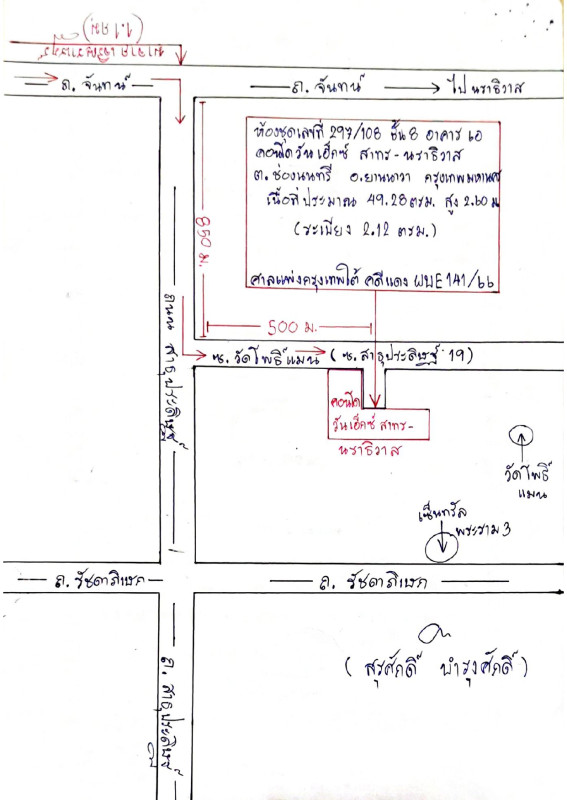 (1.1 กม)
มาจาก เจริญราษฎร์
ถ. จันทน์
ถ. จันทน์
ไป นราธิวาส
ห้องชุดเลขที่ 297/108 ชั้น 8 อาคาร เอ
คอนโดวันเอ็กซ์ สาทร-นราธิวาส
ต. ช่องนนทรี อ.ยานนาวา กรุงเทพมหานคร
เนื้อที่ประมาณ 49.28 ตรม. สูง 2.60 ม
(ระเบียง 2.12 ตรม.)
ศาลแพ่งกรุงเทพใต้ คดีแดง ผบE141/66
850 ม.
500 ม.
ถนน สาธุประดิษฐ์
ซ. วัดโพธิ์แมน (ซ. สาธุประดิษฐ์ 19)
คอนโด
วันเอ็กซ์ สาทร-
นราธิวาส
วัดโพธิ์
แมน
เซ็นทรัล
พระราม 3
ถ. รัชดาภิเษก
ถ. รัชดาภิเษก
ถ. สาธุประดิษฐ์
(สุรศักดิ์ บำรุงศักดิ์)